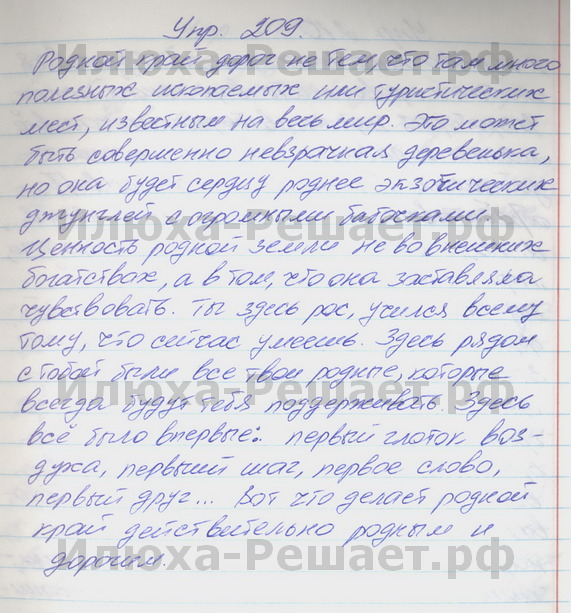 Упр. 209.
Родной край дорог не тем, что там много
полезных ископаемых или туристических
мест, известным на весь мир. Это может
быть совершенно невзрачная деревенька,
но она будет сердцу роднее экзотических
джунглей с огромными бабочками.
Ценность родной земли не во внешних
богатствах, а в том, что она заставляла
чувствовать. Ты здесь рос, учился всему
тому, что сейчас умеешь. Здесь рядом
с тобой были все твои родные, которые
всегда будут тебя поддерживать. Здесь
всё было впервые: первый глоток воз-
духа, первый шаг, первое слово,
первый друг... Вот что делает родной
край действительно родным и
дорогим.
Илюха-Решает.рф
Илюха-Решает.рф
Илюха-Решает.рф
Илюха-Решает.рф
Илюха-Решает.рф